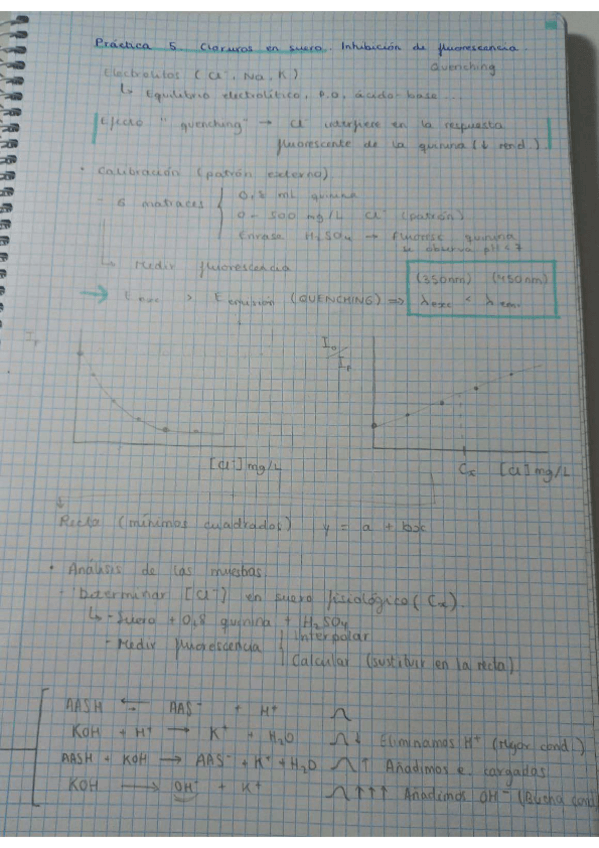 Práctica 5. Cloruros en suero. Inhibición de fluorescencia.
Quenching
Electrolitos (Cl⁻, Na, K)
↳ Equilibrio electrolítico, P.O, ácido-base
Efecto "quenching" → Cl⁻ interfiere en la respuesta
fluorescente de la quinina (↓ rend.)
• Calibración (patrón externo)
- 6 matraces
0,8 mL quinina
0 - 500 mg/L Cl⁻ (patrón)
Enrase H₂SO₄ → Fluoresc quinina
se observa pH < 7
↳ Medir fluorescencia
(350nm) (450nm)
→ E exc > E emisión (QUENCHING) ⇒ λexc < λem.
I_F
[Cl⁻] mg/L
I₀/I_F
Cx [Cl] mg/L
Recta (mínimos cuadrados) y = a + bx
• Análisis de las muestras
- Determinar [Cl⁻] en suero fisiológico (Cx).
↳ - Suero + 0,8 quinina + H₂SO₄
- Medir fluorescencia
Interpolar
Calcular (sustituir en la recta)
AASH ⇆ AAS⁻ + H⁺
KOH + H⁺ → K⁺ + H₂O ↓ Eliminamos H⁺ (Mejor cond.)
AASH + KOH → AAS⁻ + K⁺ + H₂O ↑ Añadimos e. cargados
KOH → OH⁻ + K⁺ ↑↑↑ Añadimos OH⁻ (Buena cond